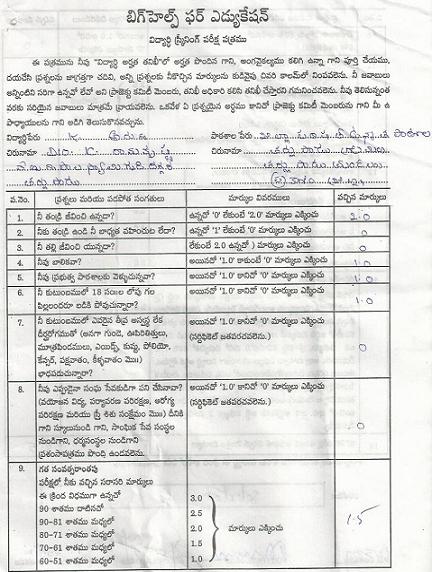 బిగ్‌హెల్ప్ ఫర్ ఎడ్యుకేషన్
విద్యార్థి స్క్రీనింగ్ పరీక్ష పత్రము
ఈ పత్రమును నీవు "విద్యార్థి అర్హత తనిఖీ"లో అర్హత పొందిన గాని, అంగవైకల్యము కలిగి ఉన్నా గాని పూర్తి చేయుము,
దయచేసి ప్రశ్నలను జాగ్రత్తగా చదివి, అన్ని ప్రశ్నలకు నీకొచ్చిన మార్కులను కుడివైపు చివరి కాలమ్‌లో నింపవలెను. నీ జవాబులు
అన్నింటిని సరిగా ఉన్నవో లేవో అని ప్రాజెక్టు కమిటీ మెంబరు, తనిఖీ అధికారి కలిసి తనిఖీ చేస్తారని గమనించవలెను. నీవు తెలిసినంత
వరకు సరియైన జవాబులు మాత్రమే వ్రాయవలెను. ఒకవేళ ఏ ప్రశ్నయైన అర్థము కానిచో ప్రాజెక్టు కమిటీ మెంబరును గాని మీ ఉ
పాధ్యాయులను గాని అడిగి తెలుసుకొనవచ్చును.
విద్యార్థిపేరు K. పాఠశాల పేరు
చిరునామా D/o. K. చిరునామా
వ.నెం. ప్రశ్నలు మరియు పడపోత సంగతులు మార్కుల వివరములు వచ్చిన మార్కులు
1. నీ తండ్రి జీవించి ఉన్నాడా? ఉన్నచో '0' లేకుంటే '2.0' మార్కులు ఎక్కించు 2.0
2. నీకు తండ్రి ఉండి నీ బాధ్యత వహించుట లేదా? ఉన్నచో '1' లేకుంటే '0' మార్కులు ఎక్కించు 0
3. నీ తల్లి జీవించి యున్నదా? లేకుంటే 2.0 ఉన్నచో ) మార్కులు ఎక్కించు 0
4. నీవు బాలికవా? అయినచో '1.0' కాకుంటే '0' మార్కులు ఎక్కించు 1.0
5. నీవు ప్రభుత్వ పాఠశాలకు వెళ్ళుచున్నావా? అయినచో '1.0' కానిచో '0' మార్కులు ఎక్కించు 1.0
6. నీ కుటుంబములో 18 సం॥ల లోపు గల అయినచో '1.0' కానిచో '0' మార్కులు ఎక్కించు 1.0
పిల్లలందరూ బడికి పోవుచున్నారా?
7. నీ కుటుంబములో ఎవరైన తీవ్ర అస్వస్థ లేక అయినచో '1.0' కానిచో '0' మార్కులు ఎక్కించు 0
దీర్ఘరోగముతో (అనగా గుండె, ఊపిరితిత్తులు, (సర్టిఫికెట్ జతపరచవలెను.)
మూత్రపిండములు, ఎయిడ్స్, కుష్ఠు, పోలియో,
కేన్సర్, పక్షవాతం, కీళ్ళవాతం మొ॥)
బాధపడుచున్నారా?
8. నీవు ఎప్పుడైనా సంఘ సేవకుడిగా పని చేసినావా? అయినచో '1.0' కానిచో '0' మార్కులు ఎక్కించు 0
(వయోజన విద్య, పర్యావరణ పరిరక్షణ, ఆరోగ్య (సర్టిఫికెట్ జతపరచవలెను.)
పరిరక్షణ మరియు స్త్రీ శిశు సంక్షేమం మొ॥) దీనికి
గాని స్కూలునుండి గాని, సాంఘిక సేవ సంస్థల
నుండిగాని, ధర్మసంస్థల నుండిగాని
ప్రశంసాపత్రము పొంది ఉండవలెను.
9. గత సంవత్సరాంతపు
పరీక్షలో నీకు వచ్చిన సరాసరి మార్కులు
ఈ క్రింద విధముగా ఉన్నచో 3.0
90 శాతము దాటినచో 2.5
90-81 శాతము మధ్యలో 2.0 మార్కులు ఎక్కించు 1.5
80-71 శాతము మధ్యలో 1.5
70-61 శాతము మధ్యలో 1.0
60-51 శాతము మధ్యలో